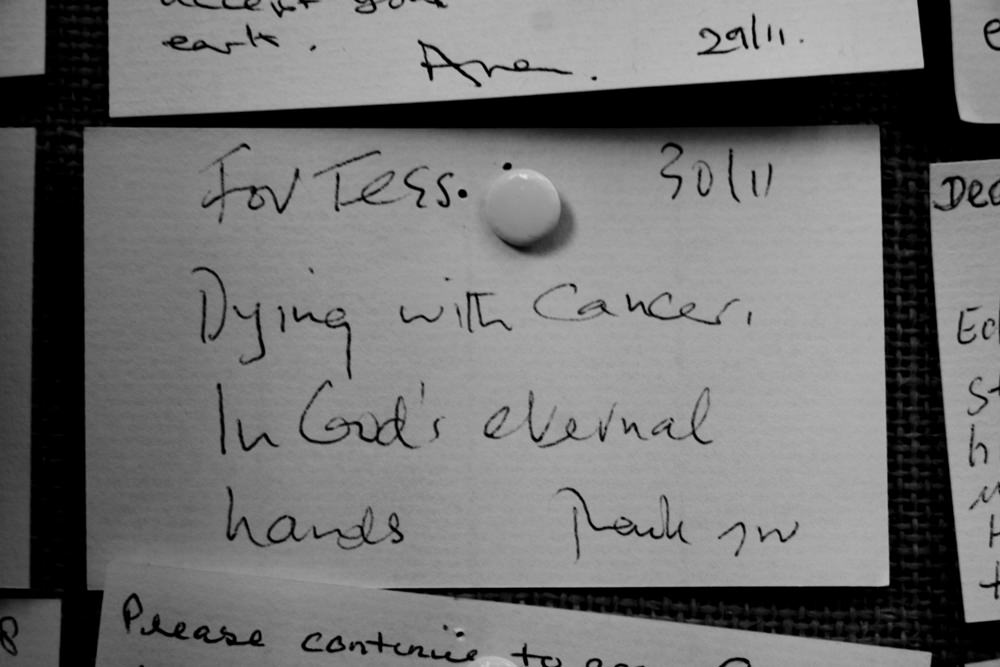 accept your
earth. Amen. 29/11.
For Tess. 30/11
Dying with Cancer.
In God's eternal
hands Thank you
Please continue to